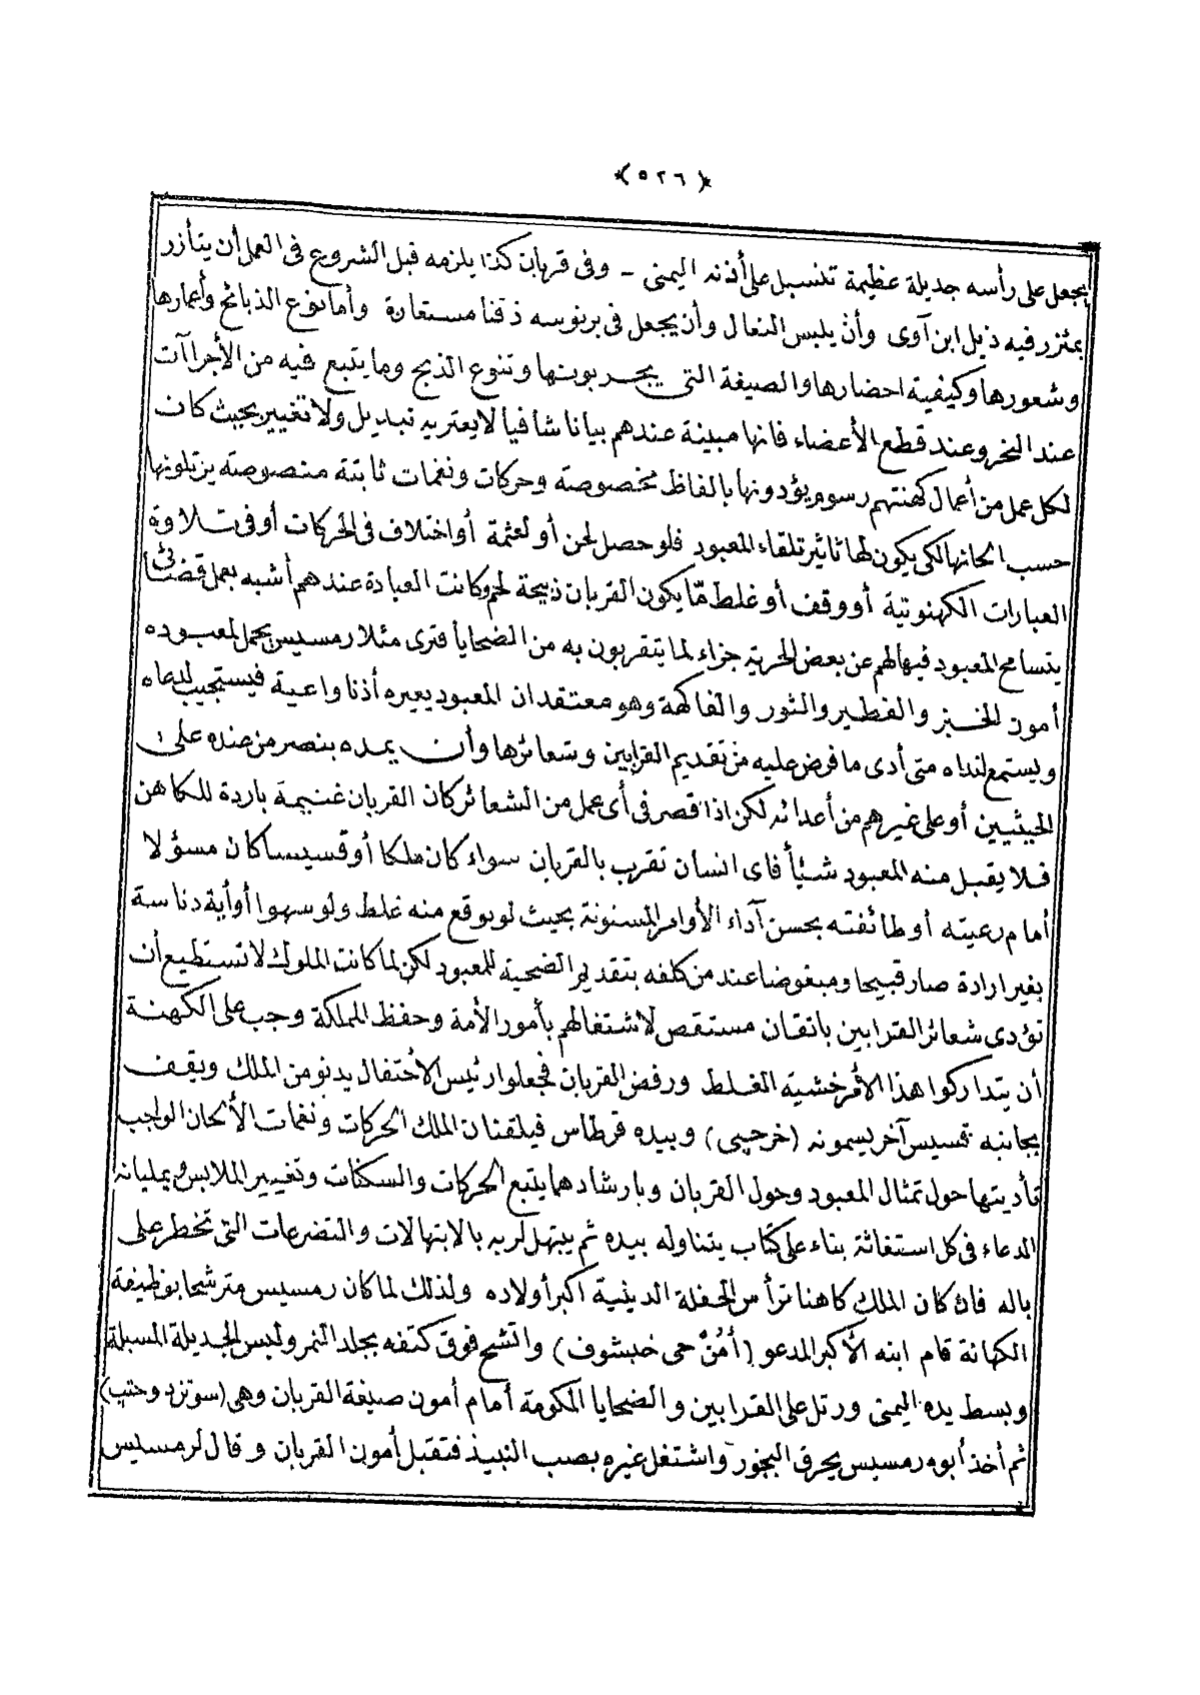 ﴿ ٥٢٦ ﴾
يجعل على رأسه جديلة عظيمة تنسبل على أذنه اليمنى – وفى قربان كذا يلزمه قبل الشروع فى العمل أن يتأزر
بمئزر فيه ذيل ابن آوى وأن يلبس النعال وأن يجعل فى برنوسه ذقنا مستعارة وأما نوع الذبائح وأعمارها
وشعورها وكيفية احضارها والصيغة التى يجر بونها وتنوع الذبح وما يتبع فيه من الأجراآت
عند النحر وعند قطع الأعضاء فانها مبينة عندهم بيانا شافيا لا يعتريه تبديل ولا تغيير بحيث كان
لكل عمل من أعمال كهنتهم رسوم يؤدونها بالفاظ مخصوصة وحركات ونغمات ثابتة منصوصة يرتلونها
حسب الحانها لكى يكون لها تاثير تلقاء المعبود فلو حصل لحن أو لعثمة أو اختلاف فى الحركات أو فى تلاوة
العبارات الكهنوتية أو وقف أو غلط مّا يكون القربان ذبيحة لحم وكانت العبادة عندهم أشبه بعمل قضائى
يتسامح المعبود فيها لهم عن بعض الحرية جزاء لما يتقربون به من الضحايا فترى مثلا رمسيس يحمل لمعبوده
أمون الخبز والفطير والثور والفاكهة وهو معتقد ان المعبود يعيره أذنا واعية فيستجيب لدعاه
ويستمع لنداه متى أدى ما فرض عليه من تقديم القرابين وشعائرها وأن يمده بنصر من عنده على
الحيثيين أو على غيرهم من أعدائه لكن اذا قصر فى أى عمل من الشعائر كان القربان غنيمة باردة للكاهن
فلا يقبل منه المعبود شيأ فاى انسان تقرب بالقربان سواء كان ملكا أو قسيسا كان مسؤلا
أمام رعيته أو طائفته بحسن آداء الأوامر المسنونة بحيث لو وقع منه غلط ولو سهوا أو أية دناسة
بغير ارادة صار قبيحا ومبغوضا عند من كلفه بتقديم الضحية للمعبود لكن لما كانت الملوك لا تستطيع أن
تؤدى شعائر القرابين باتقان مستقص لاشتغالهم بأمور الأمة وحفظ المملكة وجب على الكهنة
أن يتداركوا هذا الأمر خشية الغلط ورفض القربان فجعلوا رئيس الأحتفال يدنو من الملك ويقف
بجانبه قسيس آخر يسمونه (خرحبى) وبيده قرطاس فيلقنان الملك الحركات ونغمات الألحان الواجب
تأديتها حول تمثال المعبود وحول القربان وبارشادهما يتبع الحركات والسكنات وتغيير الملابس ويمليانه
الدعاء فى كل استغاثة بناء على كتاب يتناوله بيده ثم يبتهل لربه بالابتهالات والتضرعات التى تخطر على
باله فان كان الملك كاهنا ترأس الحفلة الدينية أكبر أولاده ولذلك لما كان رمسيس مترشحا بوظيفة
الكهانة قام ابنه الأكبر المدعو (أمُنْ حى خبشوف) واتشح فوق كتفه بجلد النمر ولبس الجديلة المسبلة
وبسط يده اليمنى ورتل على القرابين والضحايا المكومة أمام أمون صيغة القربان وهى (سوتزد وحتب)
ثم أخذ أبوه رمسيس يحرق البخور واشتغل غيره بصب النبيذ فتقبل أمون القربان وقال لرمسيس